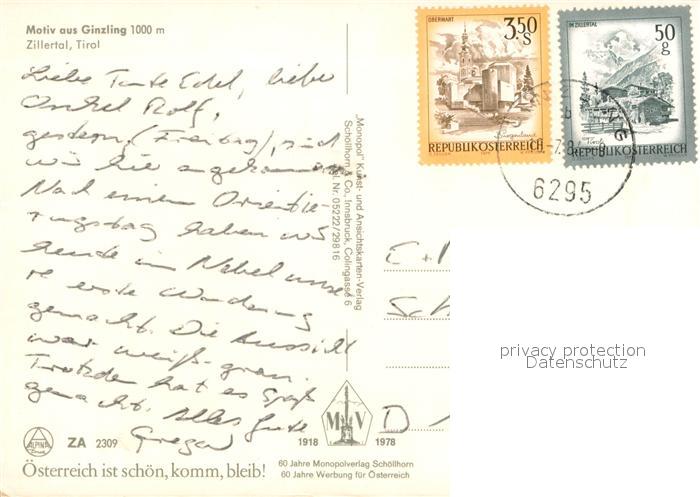 Motiv aus Ginzling 1000 m
Zillertal, Tirol
Liebe Tante Edel, liebe
Onkel Rolf,
gestern (Freitag), sind
wir hier angekommen
Nach einem Orientie-
rungstag haben wir
heute im Nebel unse-
re erste Wanderung
gemacht. Die Aussicht
war weiß-grau.
Trotzdem hat es Spaß
gemacht. Alles Gute
Gregor
ALPINA
ZA 2309
Österreich ist schön, komm, bleib!
„Monopol" Kunst- und Ansichtskarten-Verlag
Schöllhorn & Co., Innsbruck, Colingasse 6
Tel. Nr. 05222/29816
M V
1918 1978
60 Jahre Monopolverlag Schöllhorn
60 Jahre Werbung für Österreich
OBERWART
3.50 S
Burgenland
REPUBLIK ÖSTERREICH
IM ZILLERTAL
50 g
Tirol
REPUBLIK ÖSTERREICH
6295
E +
Sch
D
privacy protection
Datenschutz